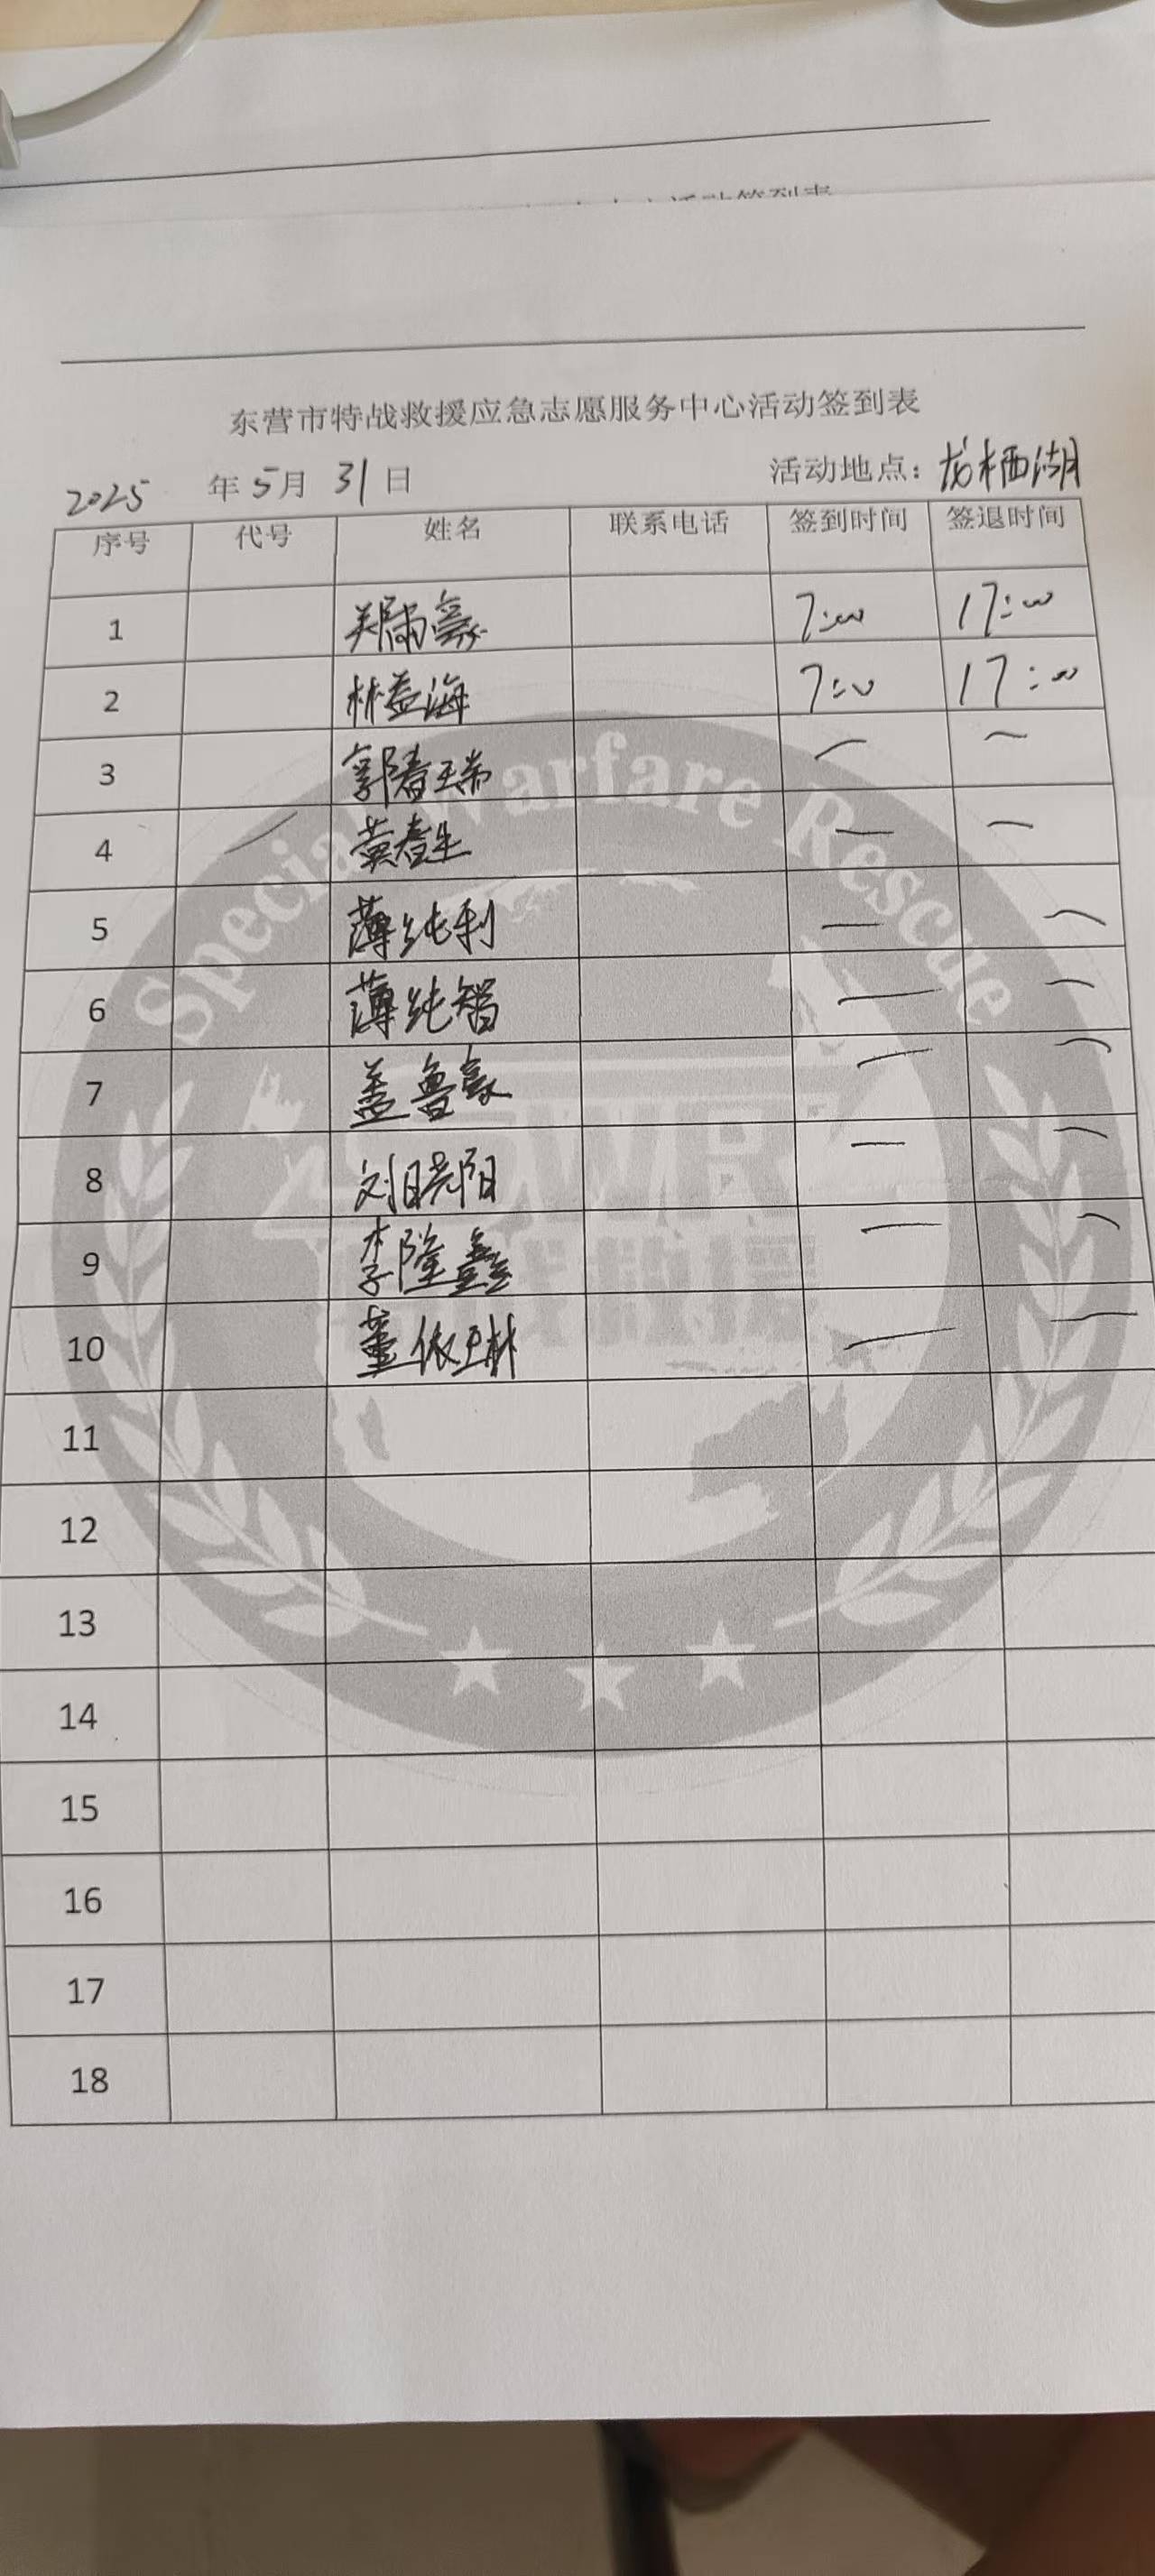 活动签到表
东营市特战救援应急志愿服务中心活动签到表
2025 年 5月 31日 活动地点：龙栖湖
序号 代号 姓名 联系电话 签到时间 签退时间
1 郑雨豪 7:00 17:00
2 林益海 7:00 17:00
3 郭春瑞 — —
4 黄春生 — —
5 薄纯利 — —
6 薄纯智 — —
7 盖鲁豪 — —
8 刘晓阳 — —
9 李隆鑫 — —
10 董依琳 — —
11
12
13
14
15
16
17
18
Special Warfare Rescue
SWR